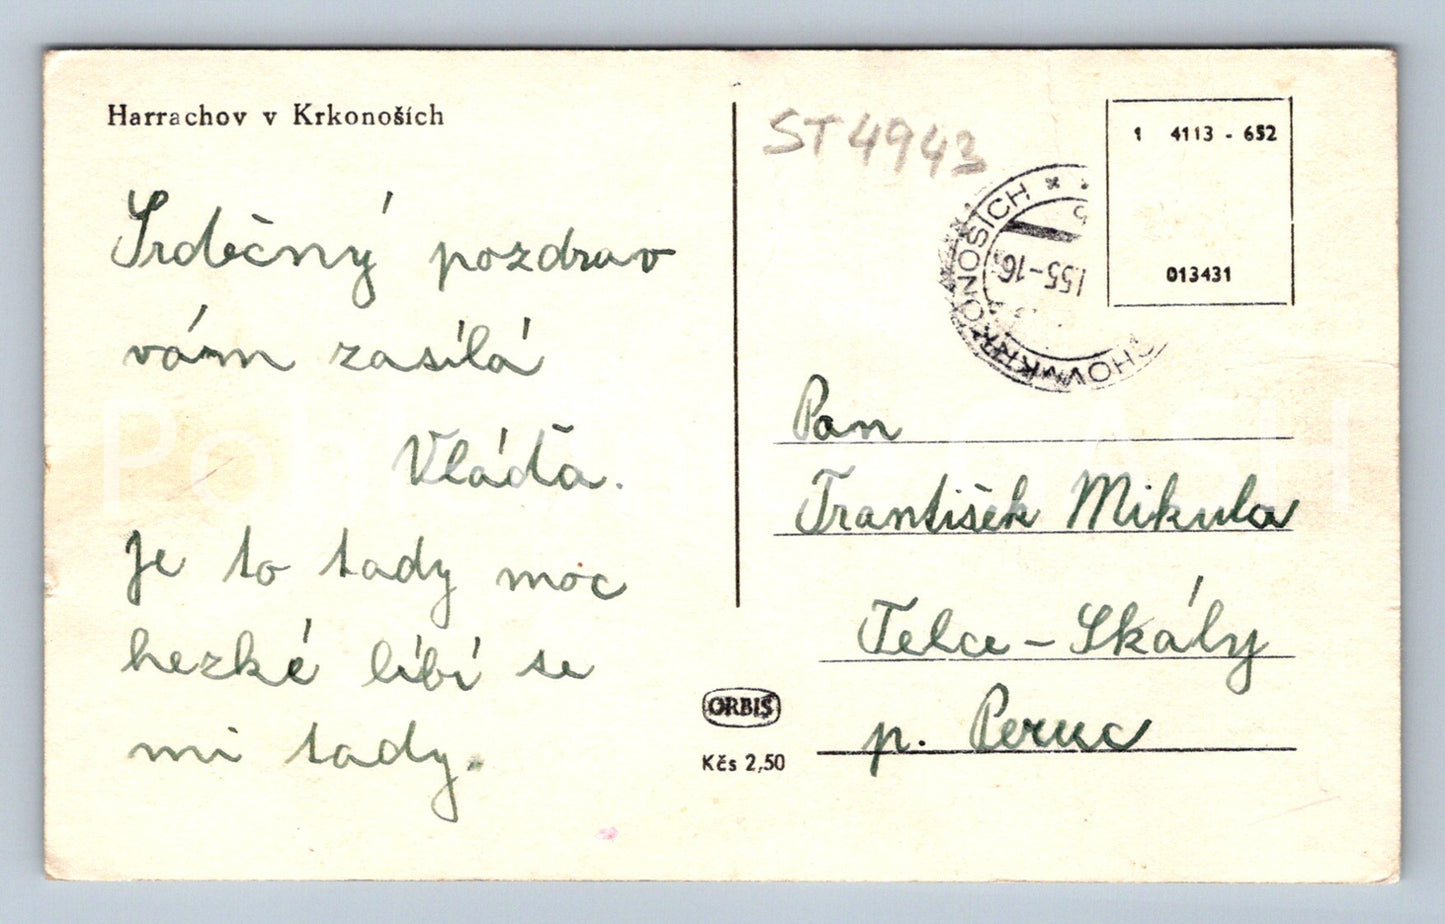 Harrachov v Krkonoších
Srdečný pozdrav
vám zasílá
Vláďa.
je to tady moc
hezké líbí se
mi tady.
ST4943
1 4113 - 652
013431
KRKONOŠÍCH
.55-16
Pan
František Mikula
Telce - Skály
p. Peruc
ORBIS
Kčs 2,50